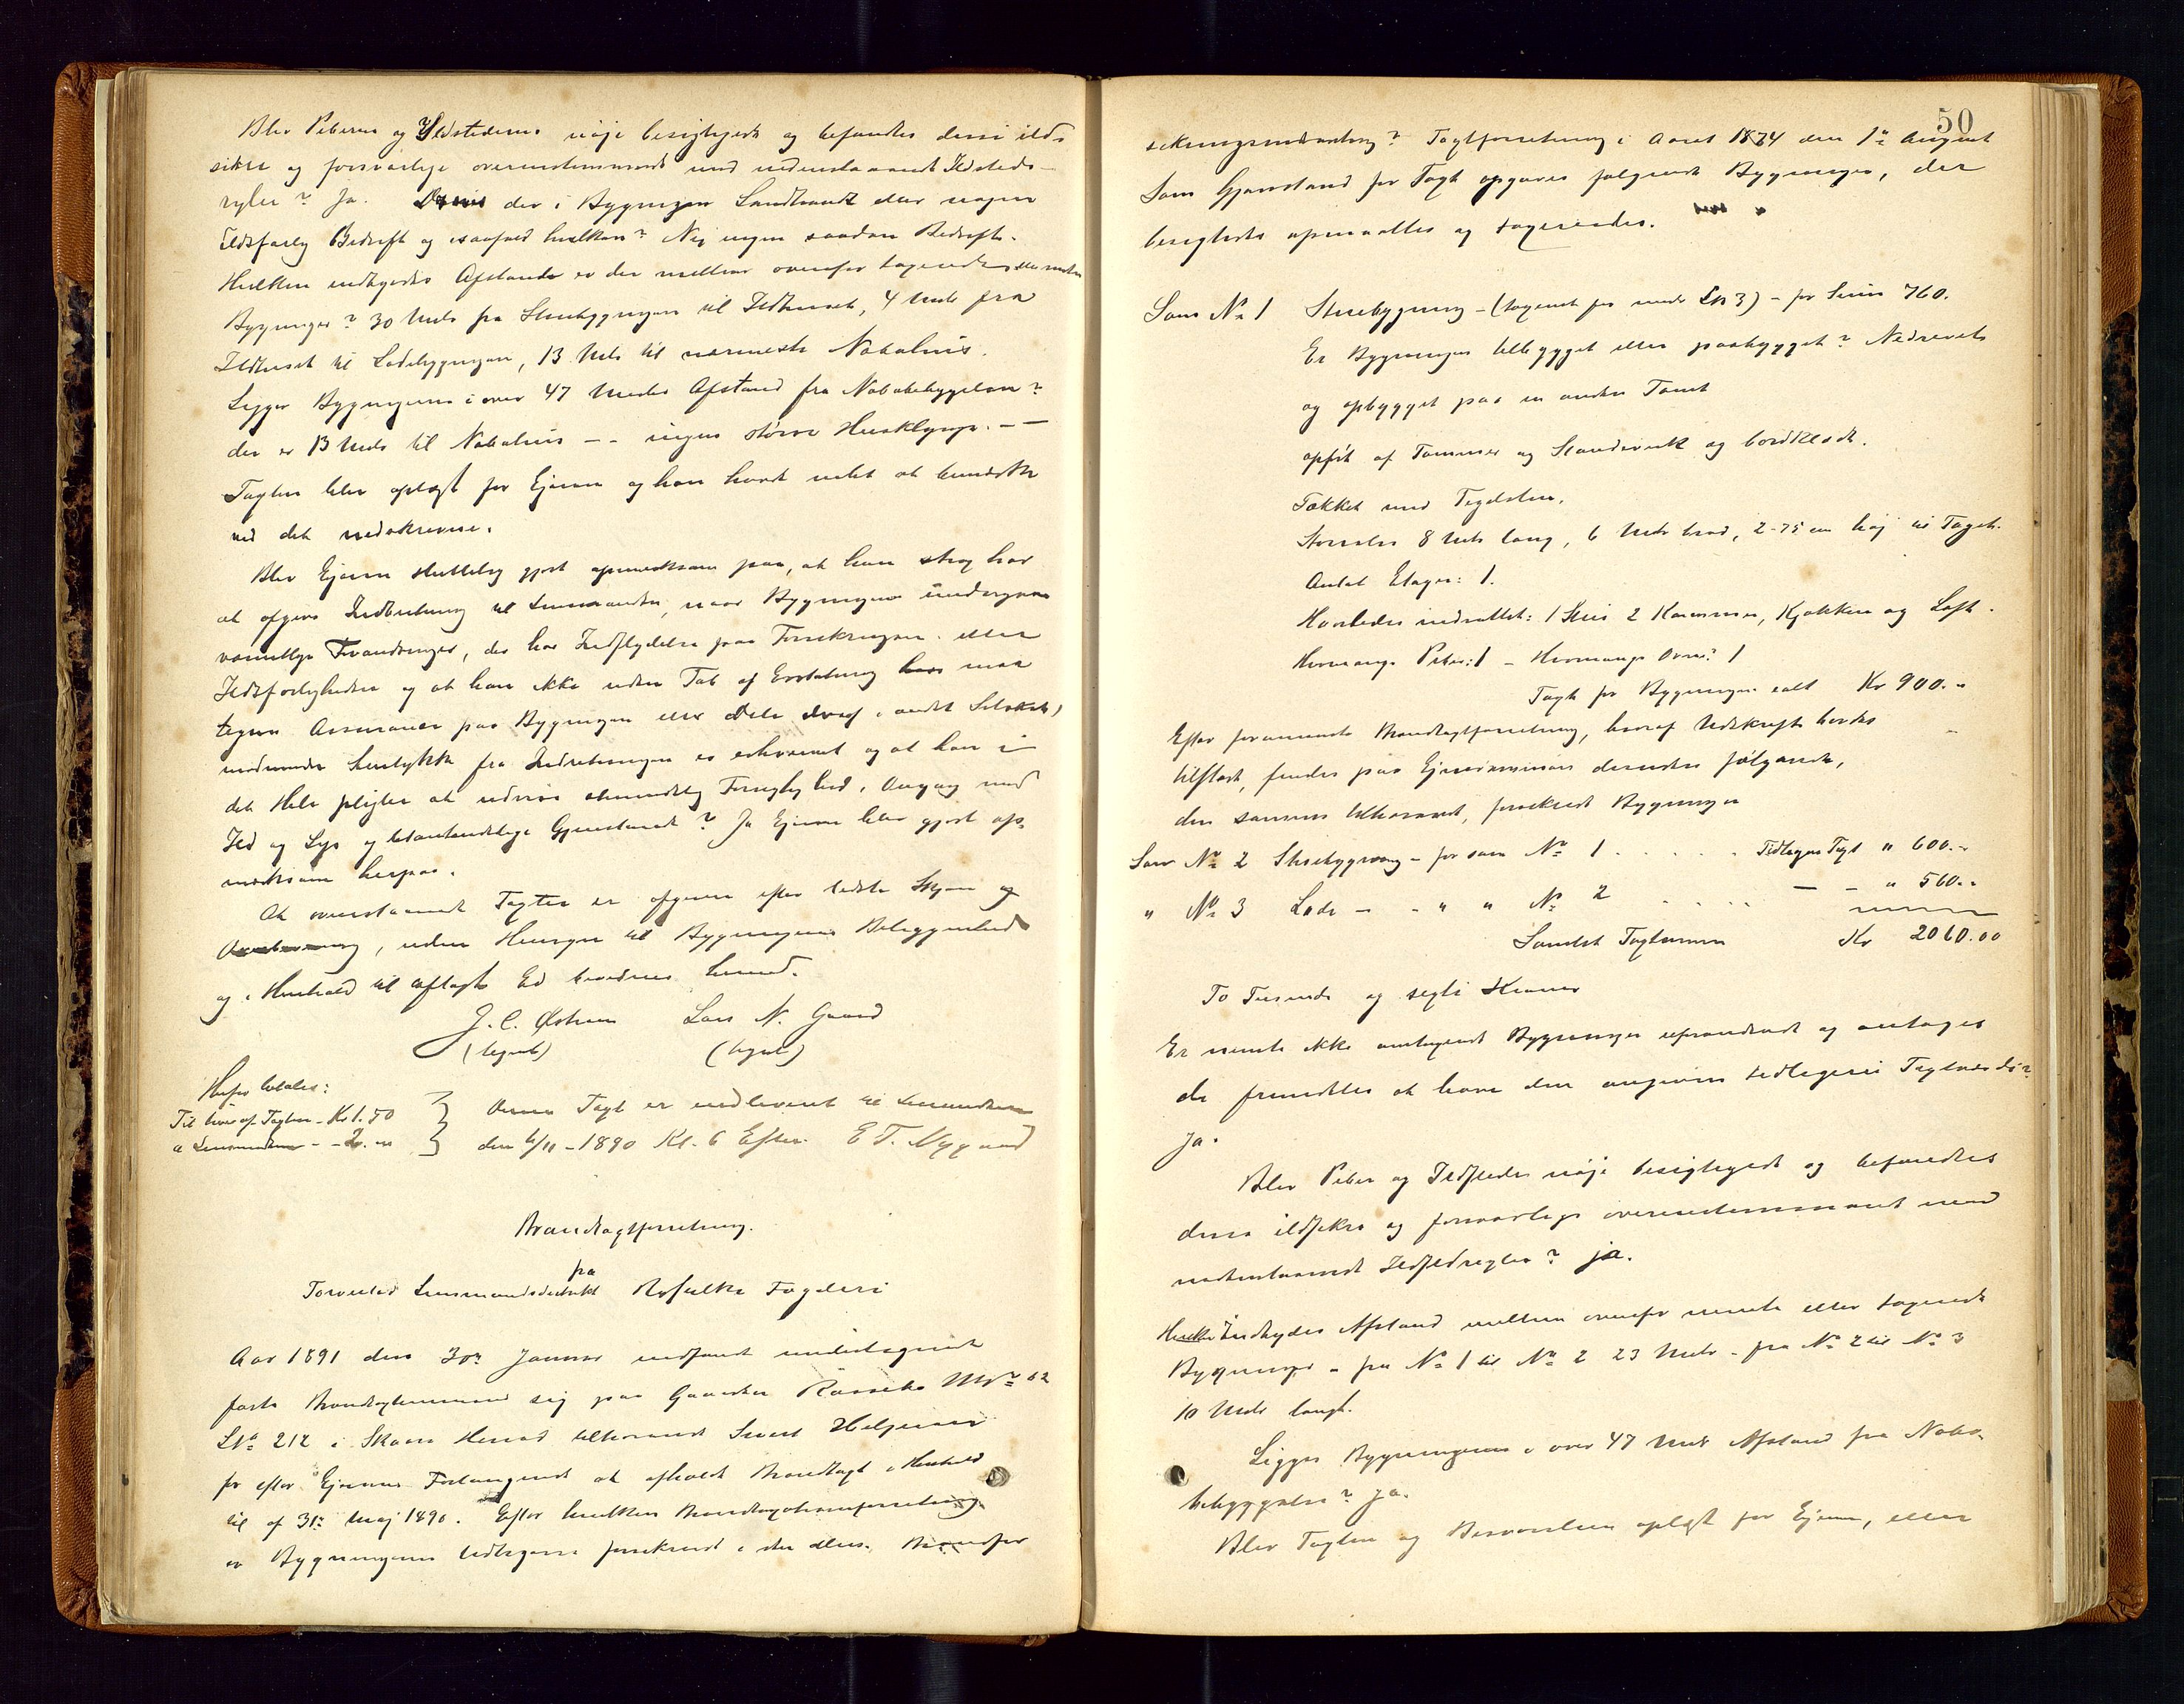 Blev Peberne og Ildstederne nøje besigtigede og befandtes disse ild-
sikre og forsvarlige overensstemmende med nedenstaaende Ildsteds-
regler? Ja. Drives der i Bygningen Landhandel eller nogen
Ildsfarlig Bedrift og isaafald hvilken? Nej ingen saadan Bedrift.
Hvilken indbyrdes Afstand er der mellem ovenfor taxerede eller nævnte
Bygninger? 30 Meter fra Stuebygningen til Ildhuset, 4 Meter fra
Ildhuset til Ladebygningen, 13 Meter til nærmeste Nabohuus.
Ligger Bygningerne i over 47 Meters Afstand fra Nabobebyggelsen?
der er 13 Meter til Nabohuus -- ingen større Husklynge. --
Taxten blev oplæst for Ejeren og han havde intet at bemærke
ved det nedskrevne.
Blev Ejeren skriftelig gjort opmærksom paa, at han strax har
at afgive Indberetning til Lensmanden, naar Bygningerne undergaar
væsentlige Forandringer, der har Indflydelse paa Forsikringen eller
Ildsfarligheden og at han ikke uden Tab af Erstatning maa
tegne Assurance paa Bygningen eller Dele deraf i andet Selskab,
medmindre Samtykke fra Indretningen er erhvervet og at han i
det Hele pligter at udvise almindelig Forsigtighed i Omgang med
Ild og Lys og letantændelige Gjenstande? Ja Ejeren blev gjort op-
mærksom herpaa.
At ovenstaaende Taxter er afgivne efter bedste Skjøn og
Overbevisning, uden Hensyn til Bygningens Beliggenhed
og i Henhold til aflagt Ed bevidnes herved.
J. C. Østrem Lars N. Gaard
(tegnet) (tegnet)
Herfor betales:
Til hver af Taxtm. - Kr 1.50
" Lensmanden - - 2. "
Denne Taxt er indleveret til Lensmanden
den 6/11 - 1890 Kl. 6 Efterm. E T. Nygaard
Brandtaxtforretning.
paa
Torvestad Lensmandsdistrikt Ryfulke Fogderi
Aar 1891 den 30te Januar indfandt undertegnede
faste Brandtaxtmænd sig paa Gaarden Røssebø MNo 62
LNo 212 i Skaare Herred tilhørende Sivert Helgesen
for efter Ejerens Forlangende at afholde Brandtaxt i Henhold
til af 31te Maj 1890. Efter hvilken Brandtaxationsforretning
er Bygningerne tidligere forsikrede i den alm. Brandfor
50
sikringsindretning? Taxtforretning i Aaret 1874 den 1te August
Som Gjenstand for Taxt opgaves følgende Bygninger, der
besigtedes opmaaltes og taxeredes.
Som No 1 Stuebygning - (taxeret før under LN 3) - for Sum 760.
Er Bygningen tilbygget eller paabygget? Nedrevet
og opbygget paa en anden Tomt
opført af Tømmer og Standeverk og bordklædt.
Tækket med Tegelsten.
Størrelse 8 Meter lang, 6 Meter bred, 2-75 cm høj til Taget.
Antal Etager: 1.
Hvorledes indrettet: 1 Stue 2 Kammer, Kjøkken og Loft.
Hvormange Peber: 1 - Hvormange Ovne? 1
Taxt for Bygningen ialt Kr 900. "
Efter foranmeldte Brandtaxtforretning, hvoraf Udskrift havdes
tilstede, findes paa Ejendommen desuden følgende,
den samme tilhørende, forsikrede Bygninger
Som No 2 Stuebygning - før som No 1 . . . . . Tidligere Taxt " 600. "
" No 3 Lade - - " " No 2 . . . . . — - " 560. "
Samlet Taxtsum Kr 2060.00
To Tusinde og segsti Kroner
Er nævnte ikke omtaxerede Bygninger uforandrede og antages
de fremdeles at have den angivne tidligere Taxtværdi?
Ja.
Blev Peber og Ildsteder nøje besigtigede og befandtes
disse ildsikre og forsvarlige overensstemmende med
nedenstaaende Ildstedregler? ja.
Hvilken Indbyrdes Afstand mellem ovenfor nævnte eller taxerede
Bygninger - fra No 1 til No 2 23 Meter - fra No 2 til No 3
10 Meter langt.
Ligger Bygningerne i over 47 Meter Afstand fra Nabo-
bebyggelse? Ja.
Blev Taxten og Besvarelsen oplæst for Ejeren, eller